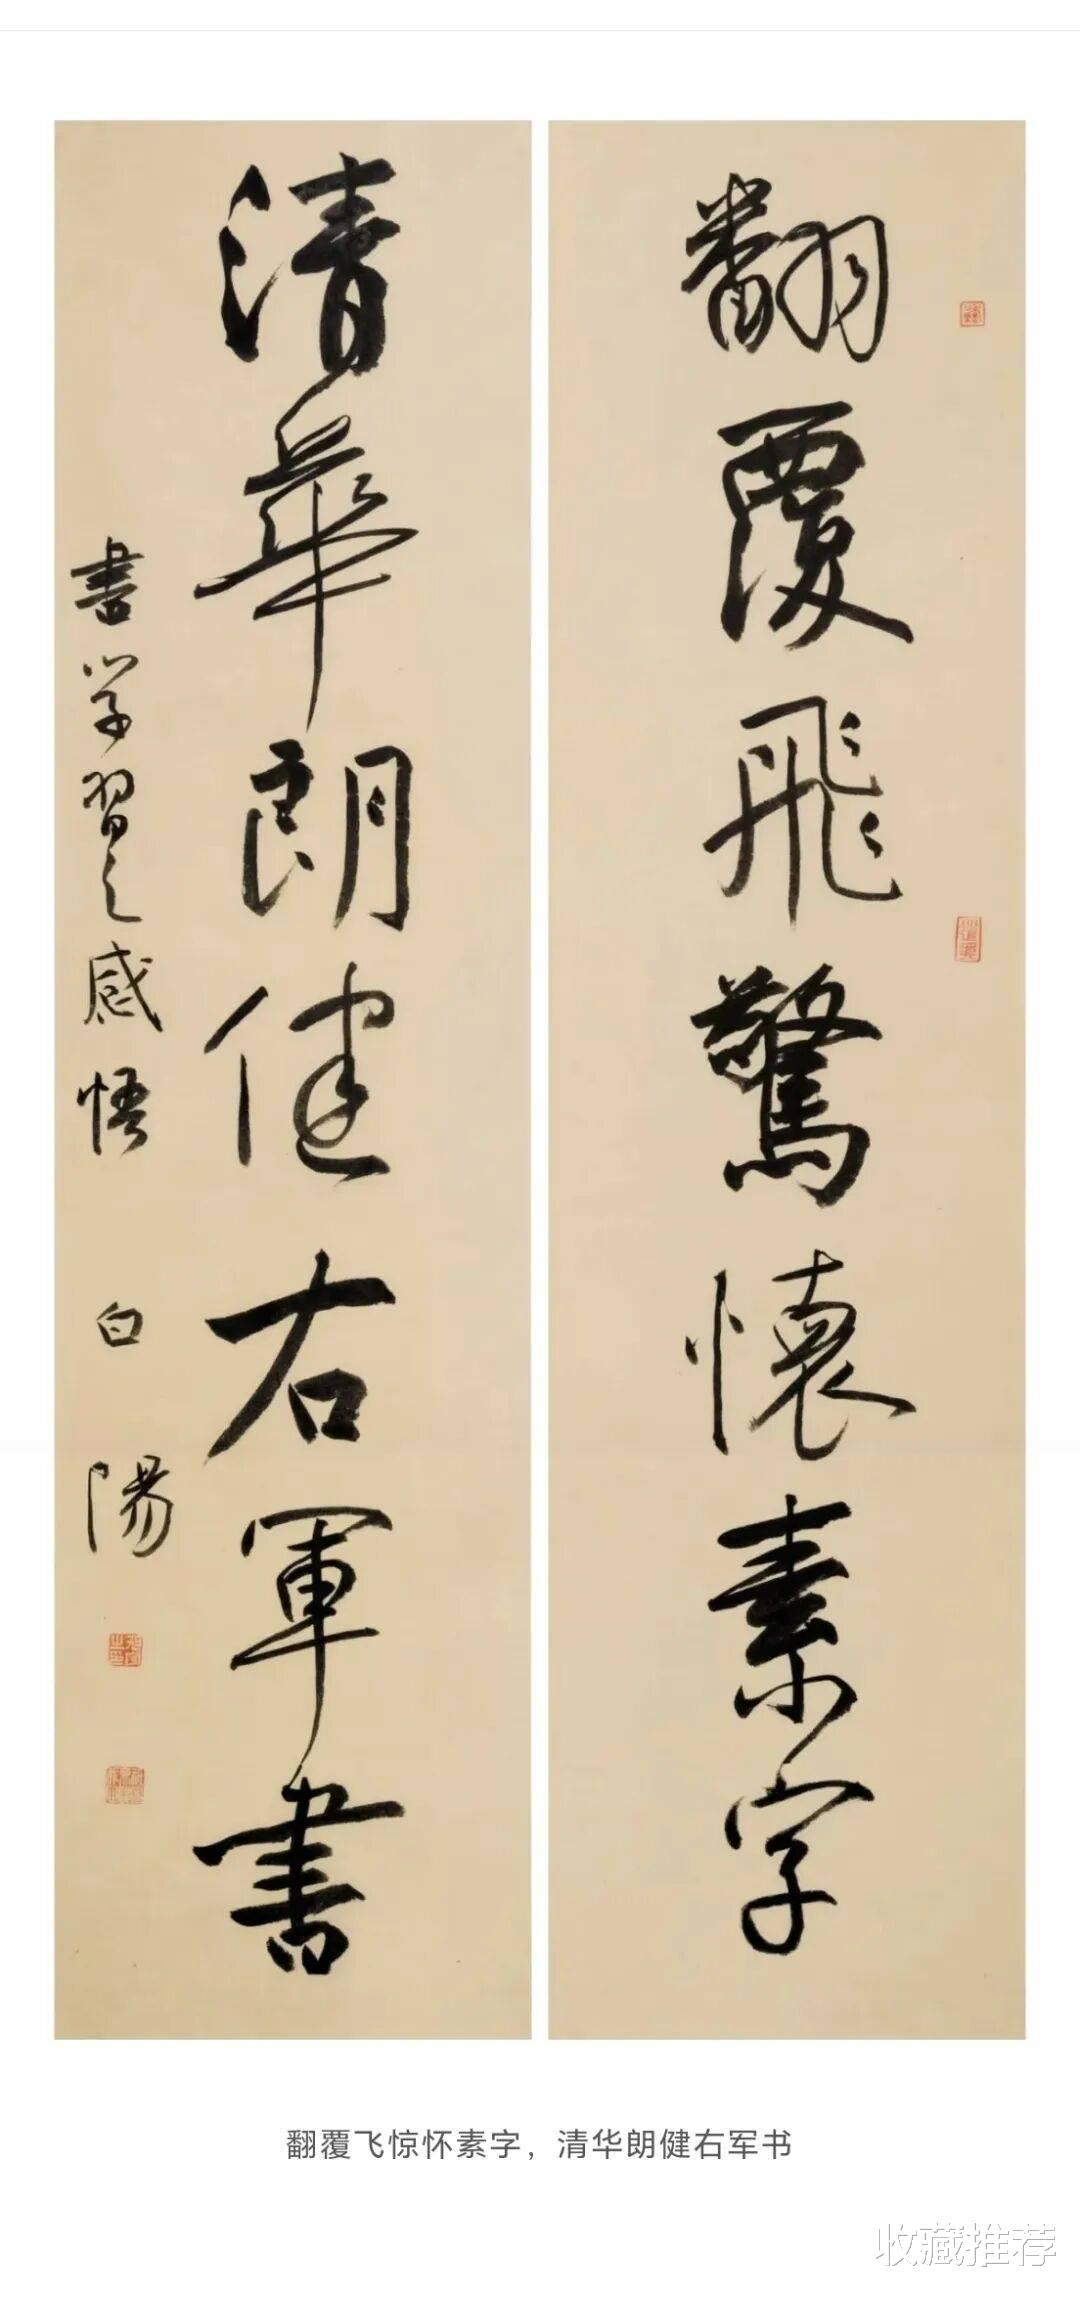 翻覆飛驚懷素字
清華朗健右軍書
書学習之感悟 白陽
翻覆飞惊怀素字，清华朗健右军书
收藏推荐